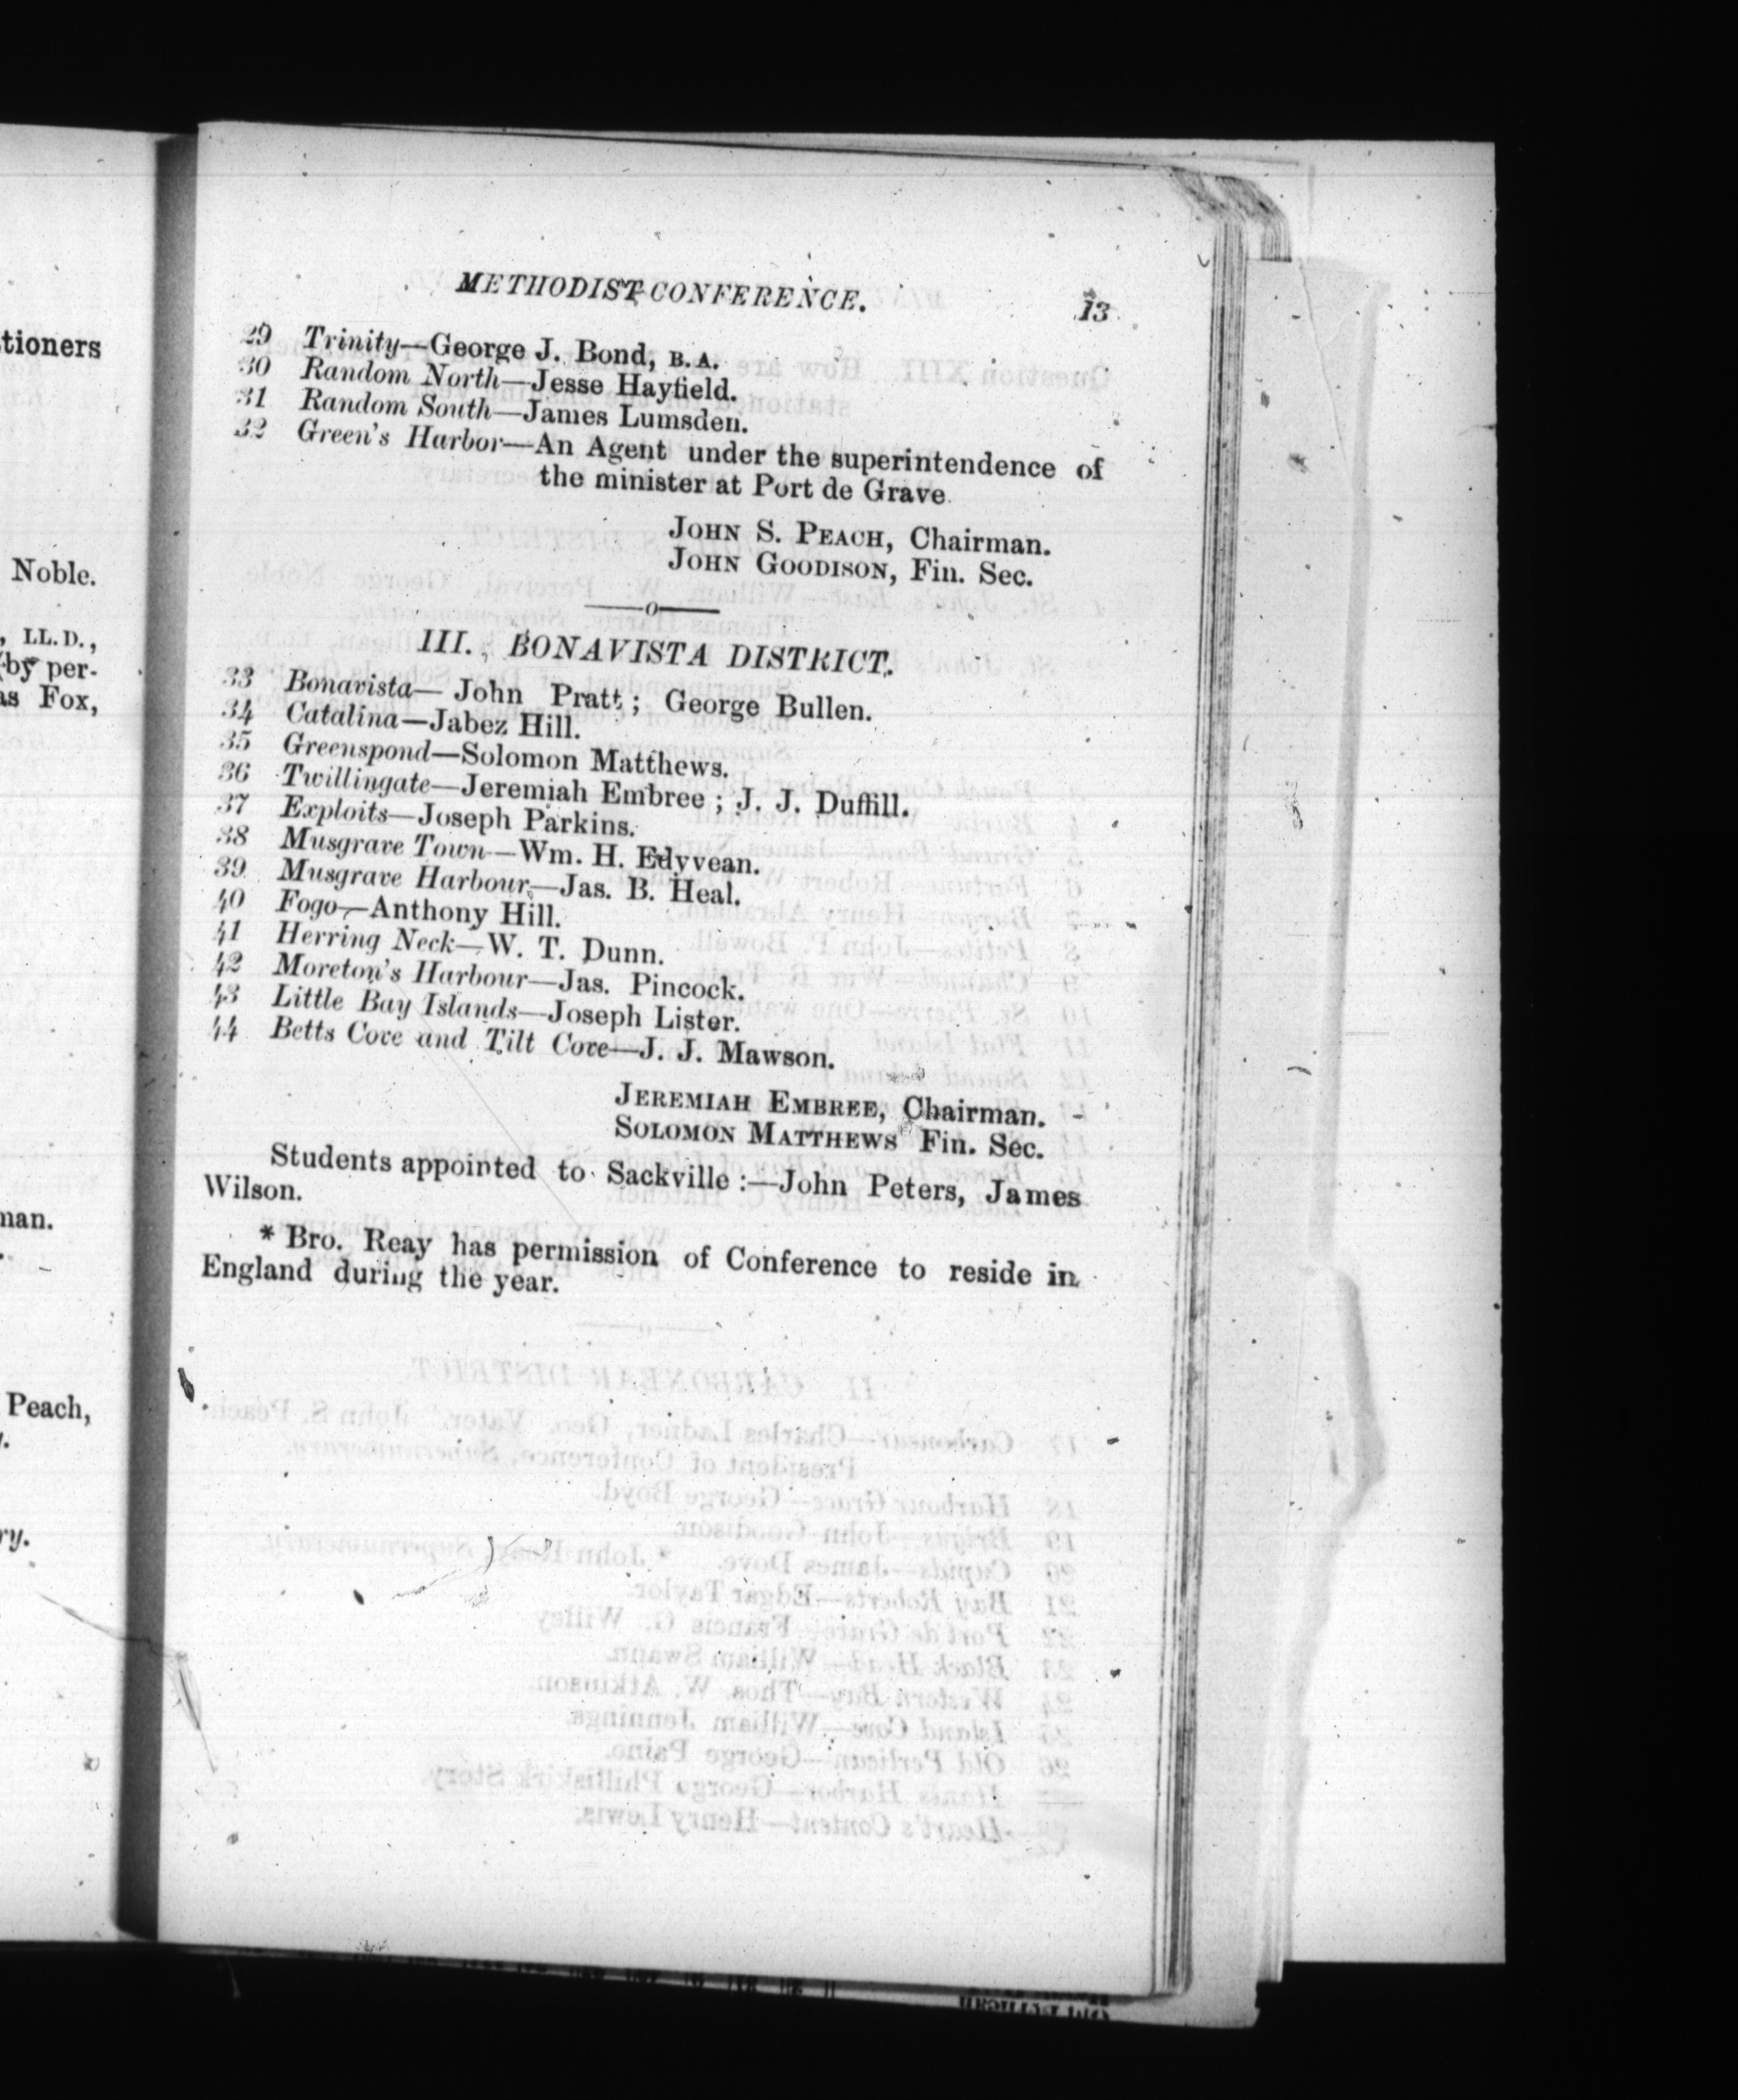 tioners
Noble.
, LL.D.,
(by per-
as Fox,
man.
Peach,
ry.
METHODIST CONFERENCE. 13
29 Trinity—George J. Bond, B.A.
30 Random North—Jesse Hayfield.
31 Random South—James Lumsden.
32 Green's Harbor—An Agent under the superintendence of
the minister at Port de Grave.
JOHN S. PEACH, Chairman.
JOHN GOODISON, Fin. Sec.
III. BONAVISTA DISTRICT.
33 Bonavista—John Pratt; George Bullen.
34 Catalina—Jabez Hill.
35 Greenspond—Solomon Matthews.
36 Twillingate—Jeremiah Embree; J. J. Duffill.
37 Exploits—Joseph Parkins.
38 Musgrave Town—Wm. H. Edyvean.
39 Musgrave Harbour—Jas. B. Heal.
40 Fogo—Anthony Hill.
41 Herring Neck—W. T. Dunn.
42 Moreton's Harbour—Jas. Pincock.
43 Little Bay Islands—Joseph Lister.
44 Betts Cove and Tilt Cove—J. J. Mawson.
JEREMIAH EMBREE, Chairman.
SOLOMON MATTHEWS Fin. Sec.
Students appointed to Sackville:—John Peters, James
Wilson.
* Bro. Reay has permission of Conference to reside in
England during the year.